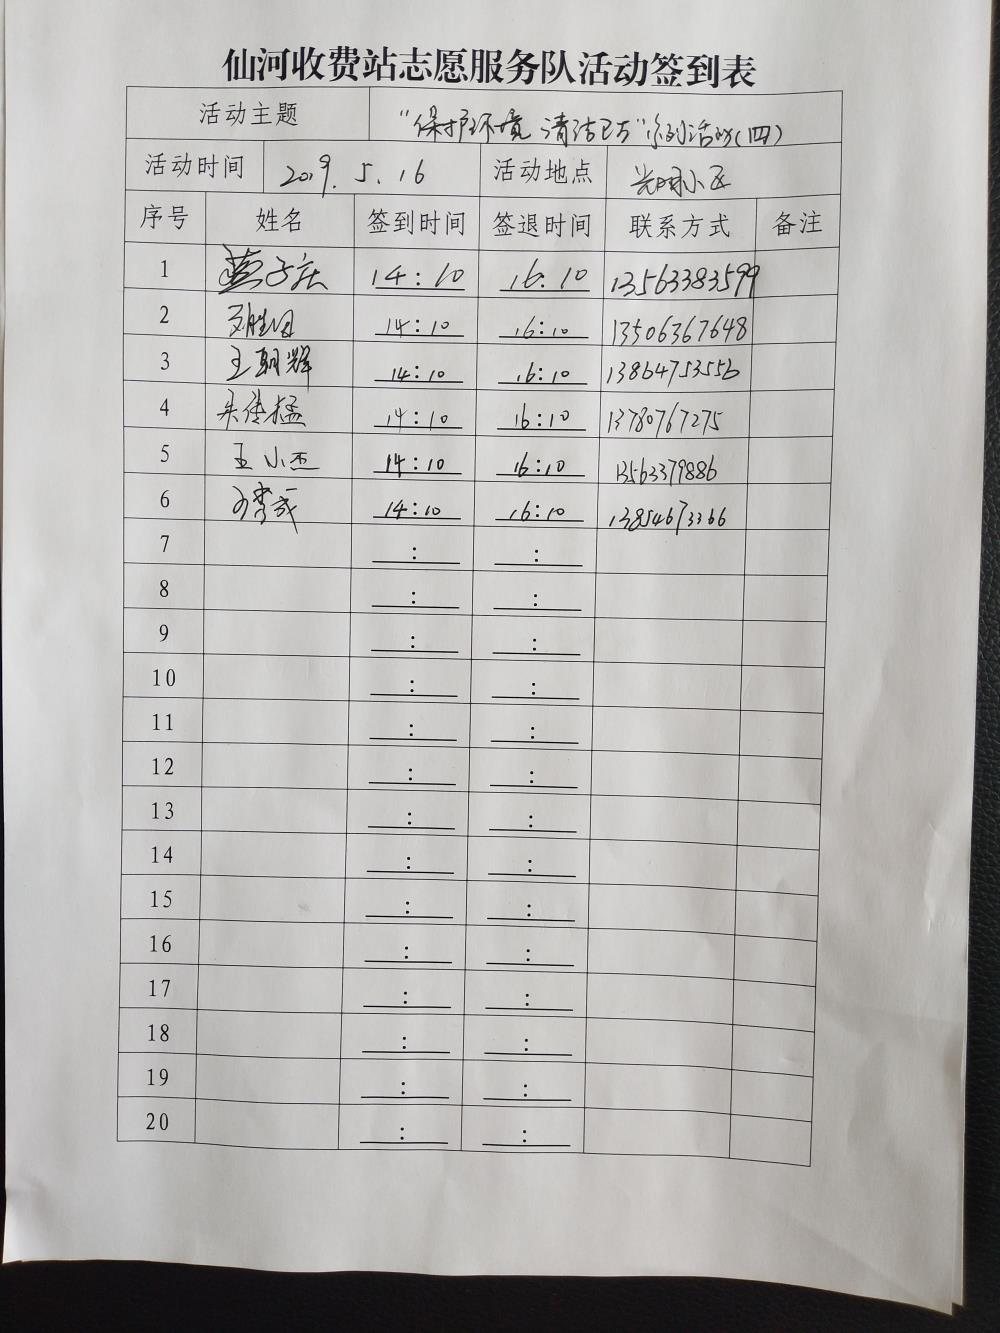 仙河收费站志愿服务队活动签到表
活动主题 “保护环境 清洁四方”系列活动(四)
活动时间 2019.5.16 活动地点 光明小区
序号 姓名 签到时间 签退时间 联系方式 备注
1 14:10 16:10 13563383599
2 14:10 16:10 13506367648
3 王朝辉 14:10 16:10 13864753556
4 朱传猛 14:10 16:10 13780767275
5 王小杰 14:10 16:10 13563379886
6 14:10 16:10 13854673366
7 : :
8 : :
9 : :
10 : :
11 : :
12 : :
13 : :
14 : :
15 : :
16 : :
17 : :
18 : :
19 : :
20 : :